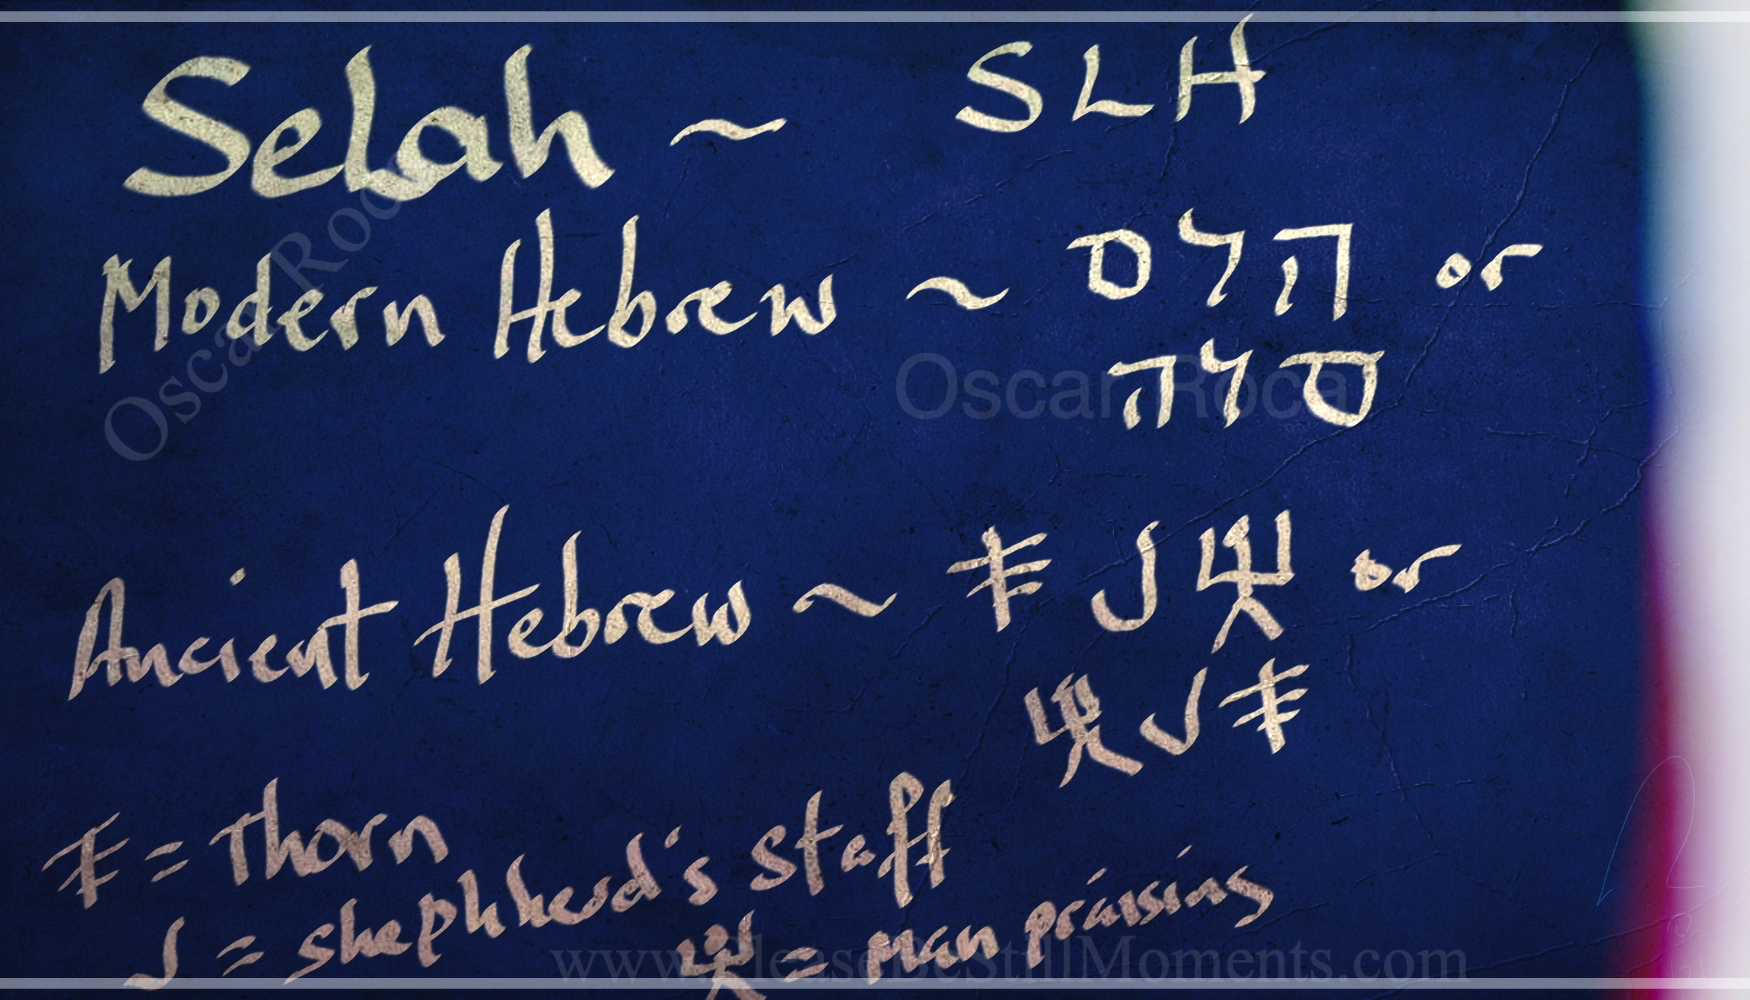 Selah ~ SLH
Modern Hebrew ~ הלס or
סלה
Ancient Hebrew ~ or
= Thorn
= shephherd's staff
= Man praising
Oscar Roca
Oscar Roca
www.PleaseBeStillMoments.com